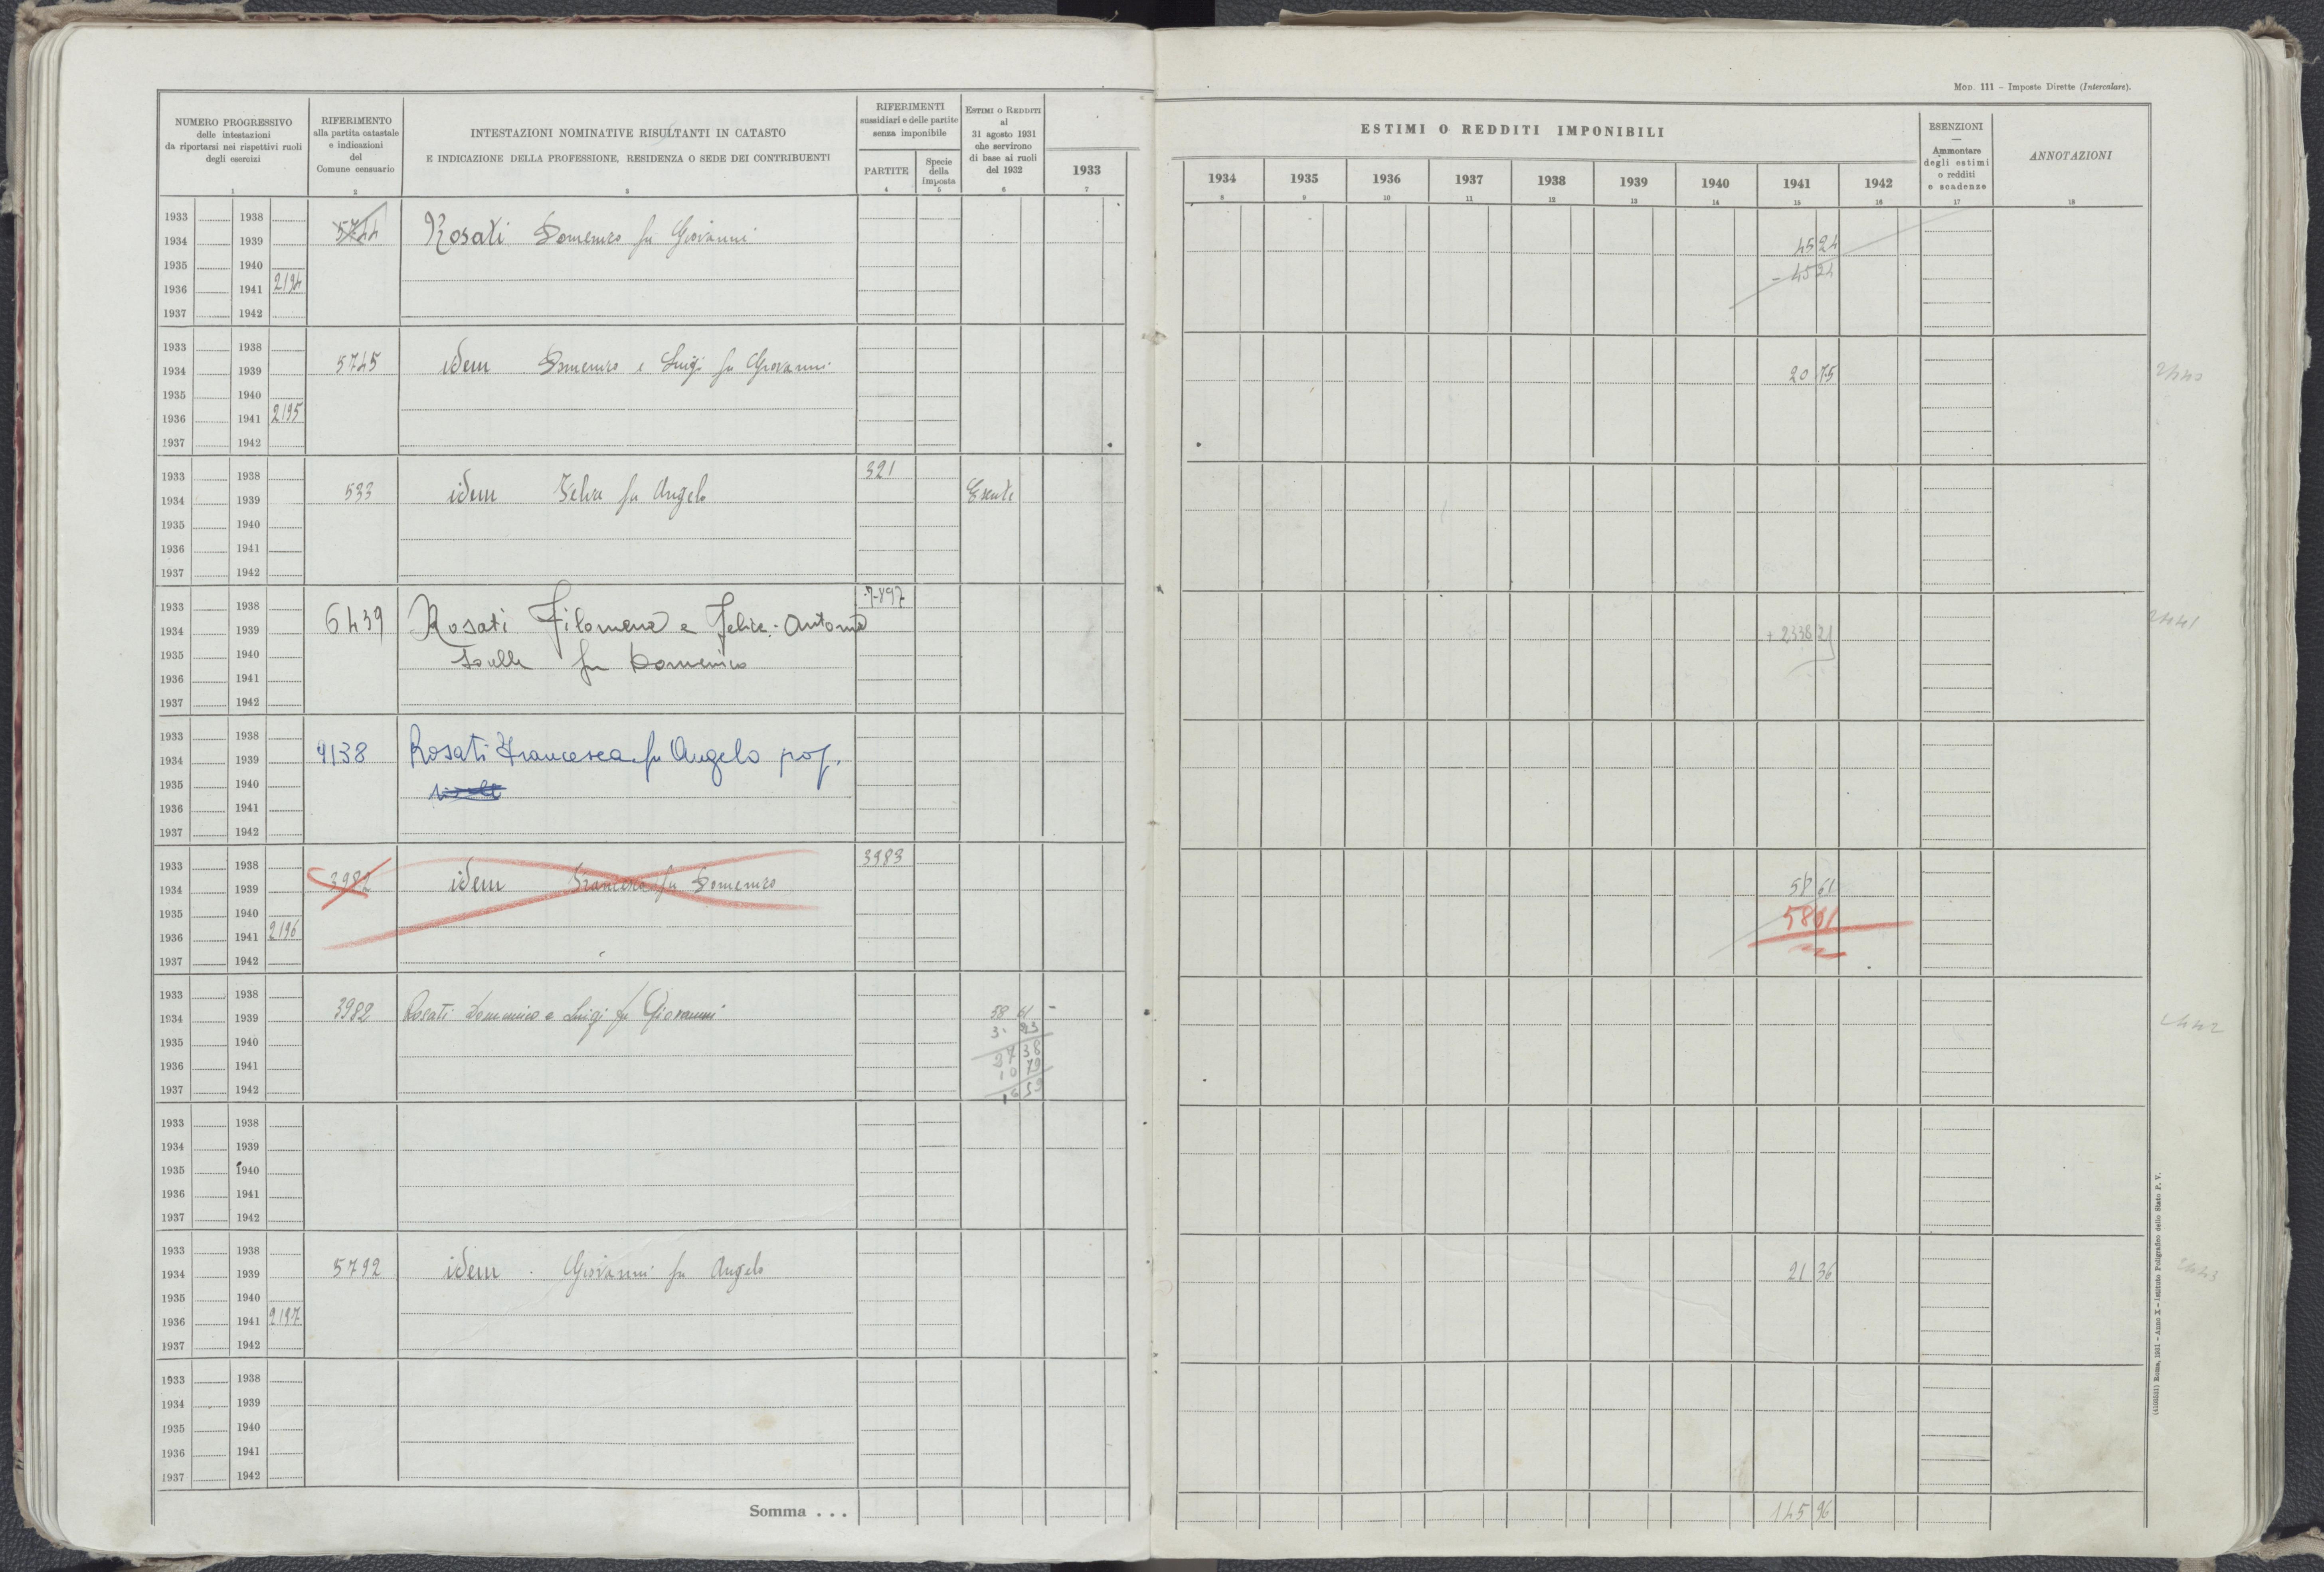 MOD. 111 – Imposte Dirette (Intercalare).
NUMERO PROGRESSIVO
delle intestazioni
da riportarsi nei rispettivi ruoli
degli esercizi
1
RIFERIMENTO
alla partita catastale
e indicazioni
del
Comune censuario
2
INTESTAZIONI NOMINATIVE RISULTANTI IN CATASTO
E INDICAZIONE DELLA PROFESSIONE, RESIDENZA O SEDE DEI CONTRIBUENTI
3
RIFERIMENTI
sussidiari e delle partite
senza imponibile
PARTITE
4
Specie
della
Imposta
5
ESTIMI O REDDITI
al
31 agosto 1931
che servirono
di base ai ruoli
del 1932
6
1933
7
ESTIMI O REDDITI IMPONIBILI
1934 1935 1936 1937 1938 1939 1940 1941 1942
8 9 10 11 12 13 14 15 16
ESENZIONI
—
Ammontare
degli estimi
o redditi
e scadenze
17
ANNOTAZIONI
18
1933 1938
5744 Rosati Domenico fu Giovanni 45 24
1934 1939
1935 1940
- 45 24
1936 1941 2194
1937 1942
1933 1938
5745 idem Domenico e Luigi fu Giovanni 20 75
1934 1939
1935 1940
1936 1941 2195
1937 1942
1933 1938 321
533 idem Felice fu Angelo Esente
1934 1939
1935 1940
1936 1941
1937 1942
1933 1938
6439 Rosati Filomena e Felice-Antonio + 2338 21 2441
1934 1939
1935 1940
fu Domenico
1936 1941
1937 1942
1933 1938
9138 Rosati Francesca fu Angelo prof.
1934 1939
1935 1940
1936 1941
1937 1942
1933 1938 3983
3982 idem Francesco fu Domenico 58 61
1934 1939
1935 1940
5861
1936 1941 2196
1937 1942
1933 1938
3982 Rosati Domenico e Luigi fu Giovanni 58 61 - 2442
1934 1939
1935 1940
27 38
1936 1941
10 79
1937 1942
16 59
1933 1938
1934 1939
1935 1940
1936 1941
1937 1942
1933 1938
5792 idem Giovanni fu Angelo 21 36 2443
1934 1939
1935 1940
1936 1941 2197
1937 1942
1933 1938
1934 1939
1935 1940
1936 1941
1937 1942
Somma . . . 145 96
Roma, 1931 – Anno X – Istituto Poligrafico dello Stato P. V.